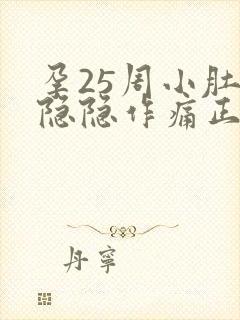 孕25周小肚
隐隐作痛正
丹宁